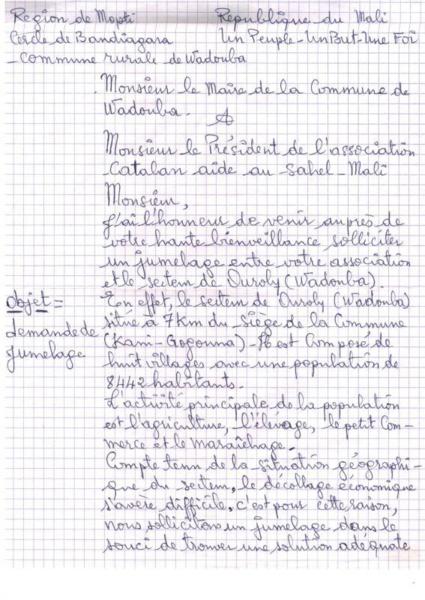 Région de Mopti République du Mali
Cercle de Bandiagara Un Peuple-Un But-Une Foi
-commune rurale de Wadouba
Monsieur le Maire de la Commune de
Wadouba.
A
Monsieur le Président de l'association
Catalan aide au Sahel-Mali
Monsieur,
J'ai l'honneur de venir auprès de
votre haute bienveillance solliciter
un jumelage entre votre association
et le secteur de Ouroly (Wadouba).
Objet =
demande de
jumelage
En effet, le secteur de Ouroly (Wadouba)
situé à 7Km du siège de la Commune
(Kani-Gogouna) est Composé de
huit villages avec une population de
8442 habitants.
L'activité principale de la population
est l'agriculture, l'élevage, le petit Com-
merce et le maraîchage.
Compte tenu de la situation géographi-
que du secteur, le décollage économique
s'avère difficile. c'est pour cette raison,
nous sollicitons un jumelage dans le
souci de trouver une solution adéquate